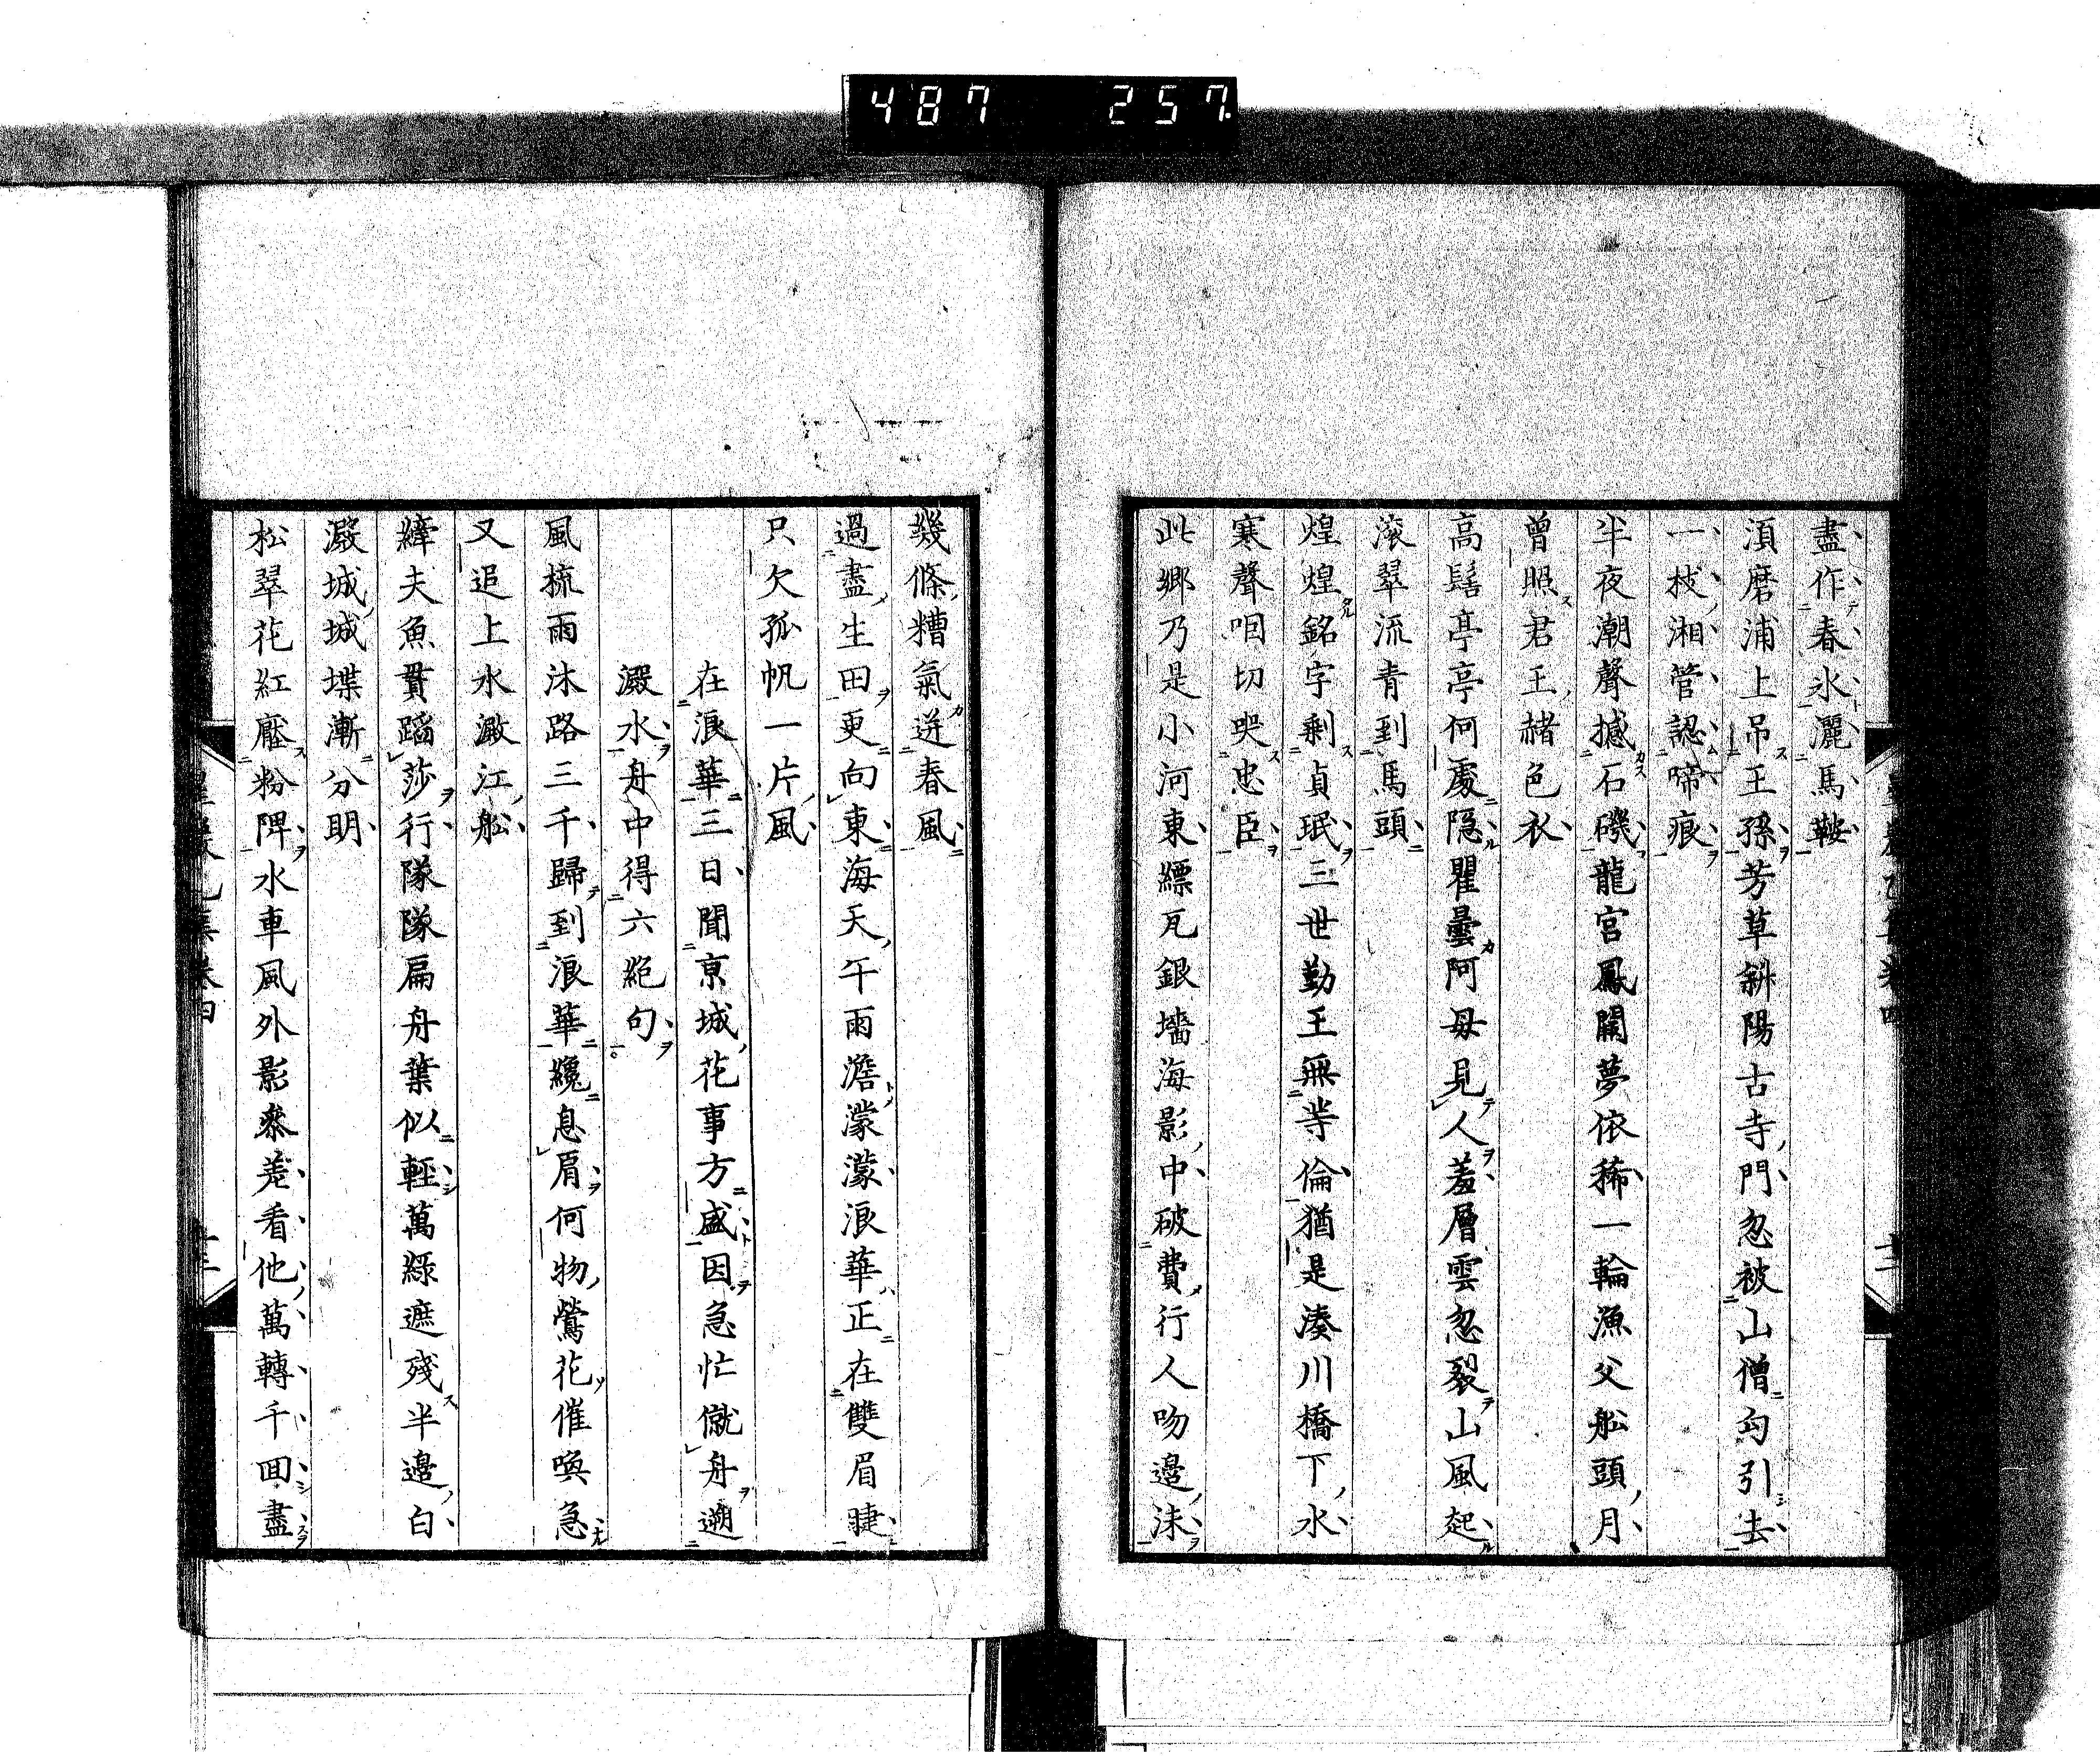 487 257
盡作春氷灑馬鞍
須磨浦上吊王孫芳草斜陽古寺門忽被山僧勾引去
一枝湘管認啼痕
半夜潮聲撼石磯龍宮鳳闕夢依稀一輪漁父舩頭月
曾照君王赭色衣
高髻亭亭何處隠瞿曇阿母見人羞層雲忽裂山風起
滚翠流青到馬頭
煌煌銘字剩貞珉三世勤王無等倫猶是湊川橋下水
寒聲咽切哭忠臣
此郷乃是小河東縹瓦銀墻海影中破費行人吻邊沫
幾條糟氣迸春風
過盡生田更向東海天午雨澹濛濛浪華正在雙眉睫
只欠孤帆一片風
在浪華三日聞京城花事方盛因急忙僦舟遡
澱水舟中得六絕句
風梳雨沐路三千歸到浪華纔息肩何物鶯花催喚急
又追上水澱江舩
縴夫魚貫蹈莎行隊隊扁舟葉似輕萬綠遮殘半邊白
澱城城堞漸分明
松翠花紅壓粉陴水車風外影參差看他萬轉千回盡